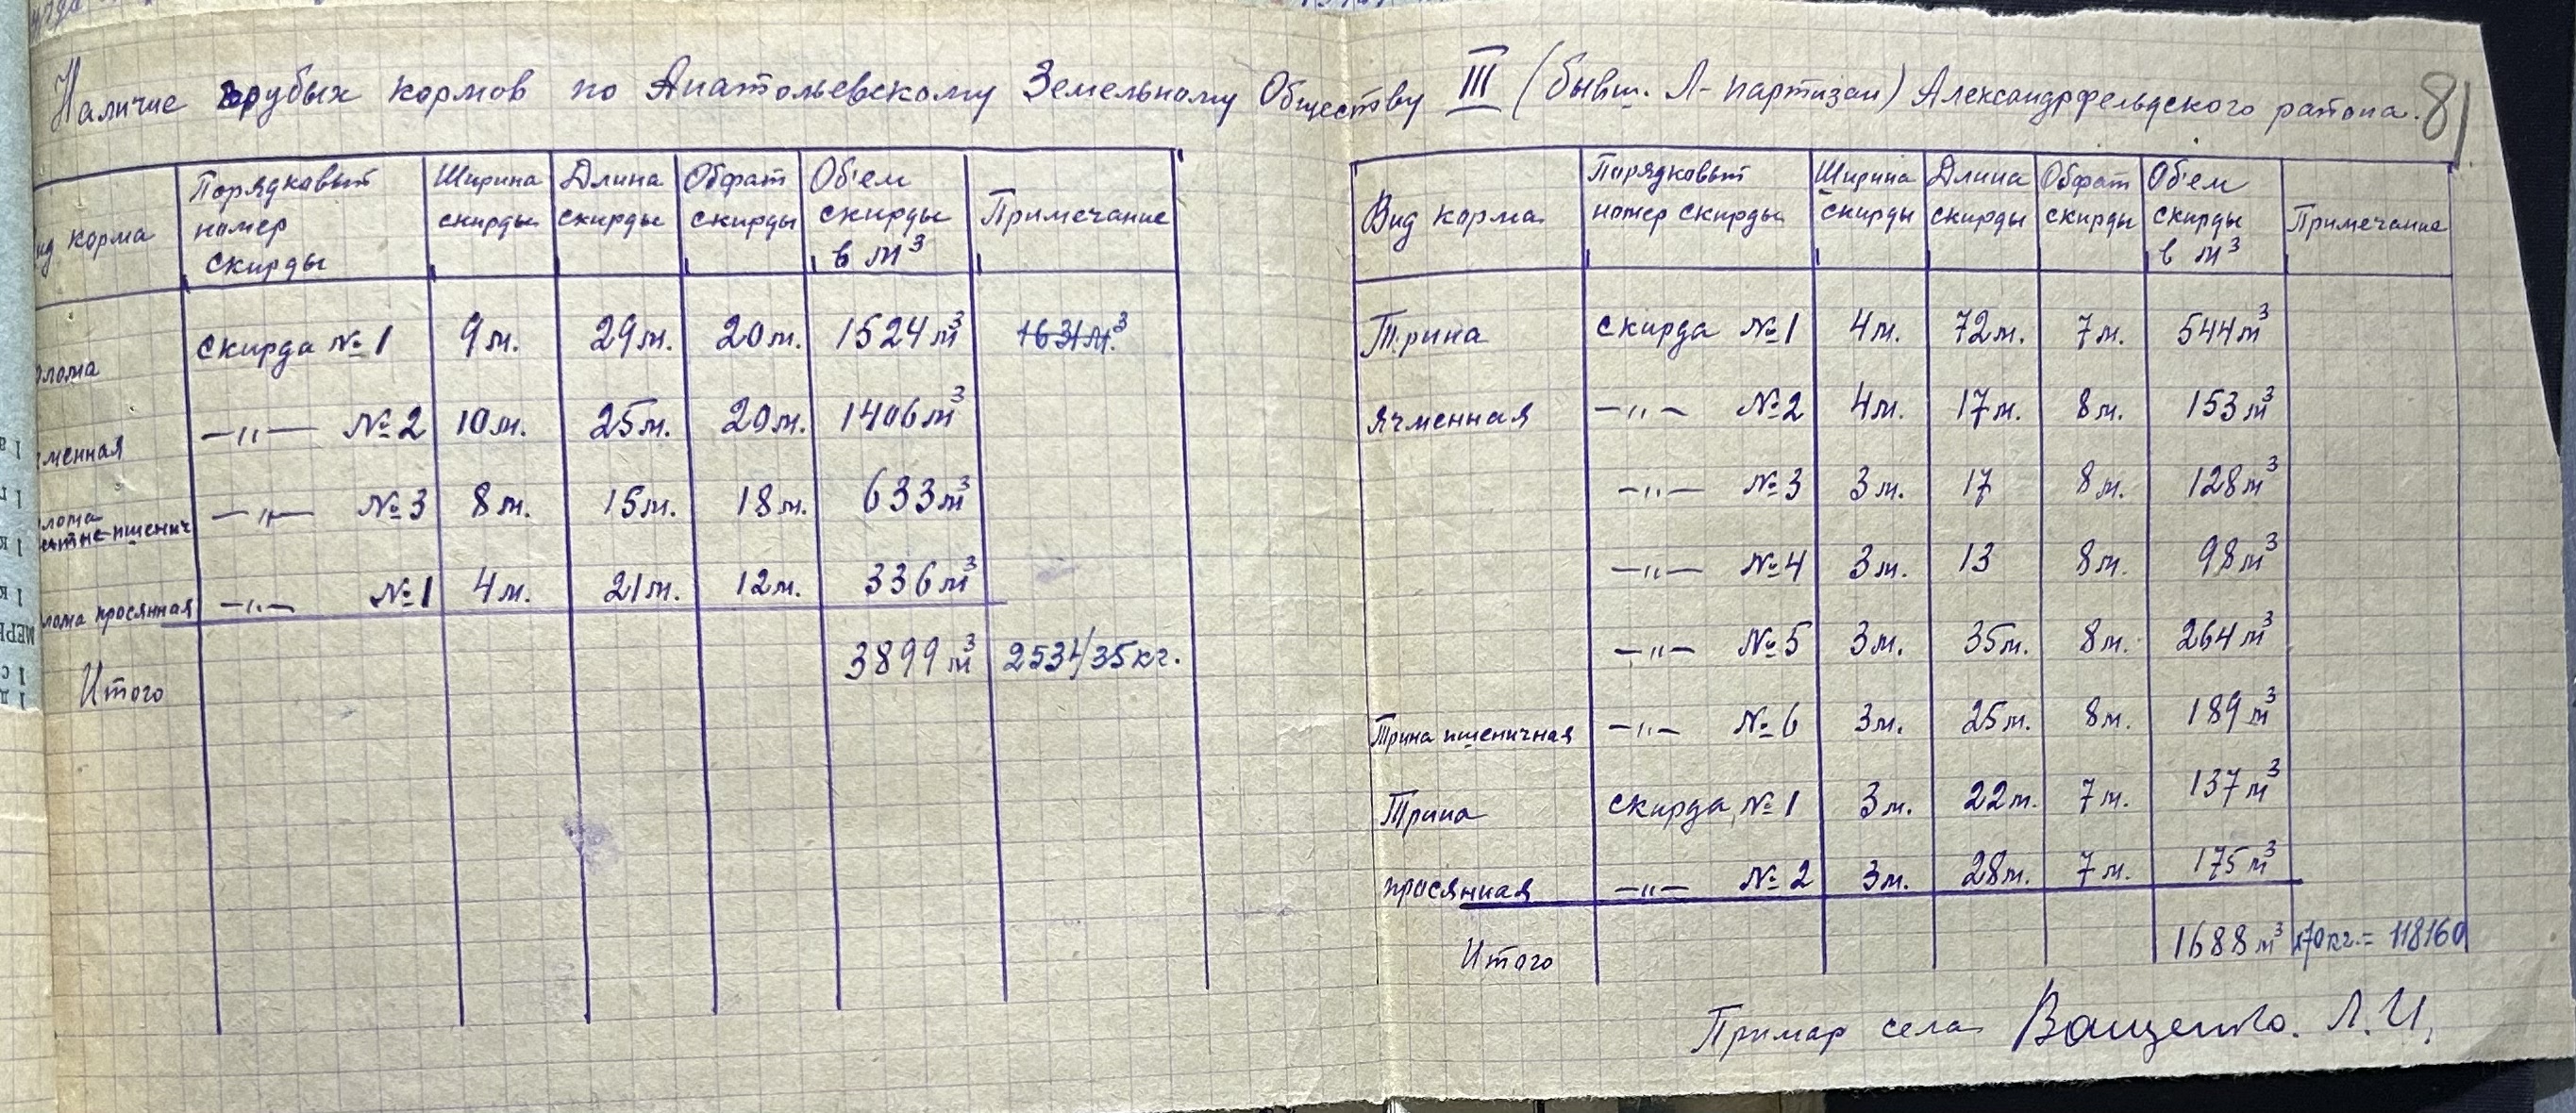 Наличие грубых кормов по Анатольевскому Земельному Обществу III (бывш. Л-партизан) Александрфельдского района. 81
ид корма | Порядковый номер скирды | Ширина скирды | Длина скирды | Обхват скирды | Об'ем скирды в м³ | Примечание
олома | скирда №1 | 9 м. | 29 м. | 20 м. | 1524 м³ | 1631 м.³
менная | —„— №2 | 10 м. | 25 м. | 20 м. | 1406 м³
лома пшенич | —„— №3 | 8 м. | 15 м. | 18 м. | 633 м³
лома просянная | —„— №1 | 4 м. | 21 м. | 12 м. | 336 м³
Итого | 3899 м³ | 253 /35 кг.
Вид корма | Порядковый номер скирды | Ширина скирды | Длина скирды | Обхват скирды | Об'ем скирды в м³ | Примечание
Трина | скирда №1 | 4 м. | 72 м. | 7 м. | 544 м³
ячменная | —„— №2 | 4 м. | 17 м. | 8 м. | 153 м³
—„— №3 | 3 м. | 17 | 8 м. | 128 м³
—„— №4 | 3 м. | 13 | 8 м. | 98 м³
—„— №5 | 3 м. | 35 м. | 8 м. | 264 м³
Трина пшеничная | —„— №6 | 3 м. | 25 м. | 8 м. | 189 м³
Трина | скирда №1 | 3 м. | 22 м. | 7 м. | 137 м³
просянная | —„— №2 | 3 м. | 28 м. | 7 м. | 175 м³
Итого | 1688 м³ | х70 кг. = 118160
Примар села Ващенко. Л.И.